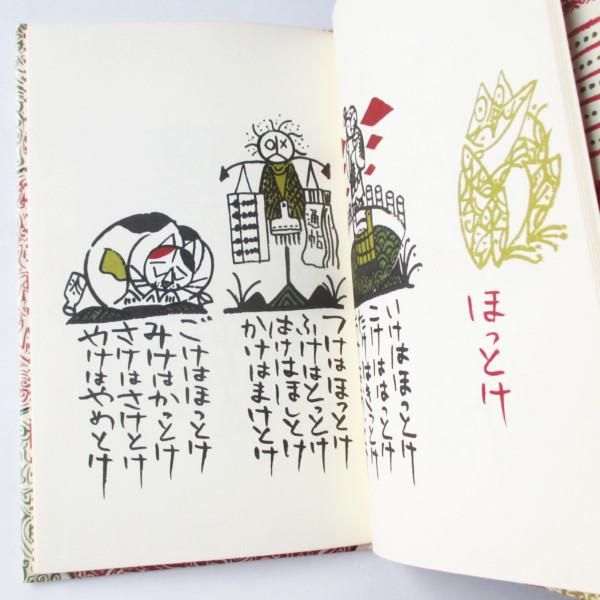 ほっとけ
いけはほっとけ
こけははっとけ
たけはきっとけ
通帖
つけはほっとけ
ふけはとっとけ
はけはほしとけ
かけはまけとけ
ごけはほっとけ
みけはかっとけ
さけはさけとけ
やけはやめとけ